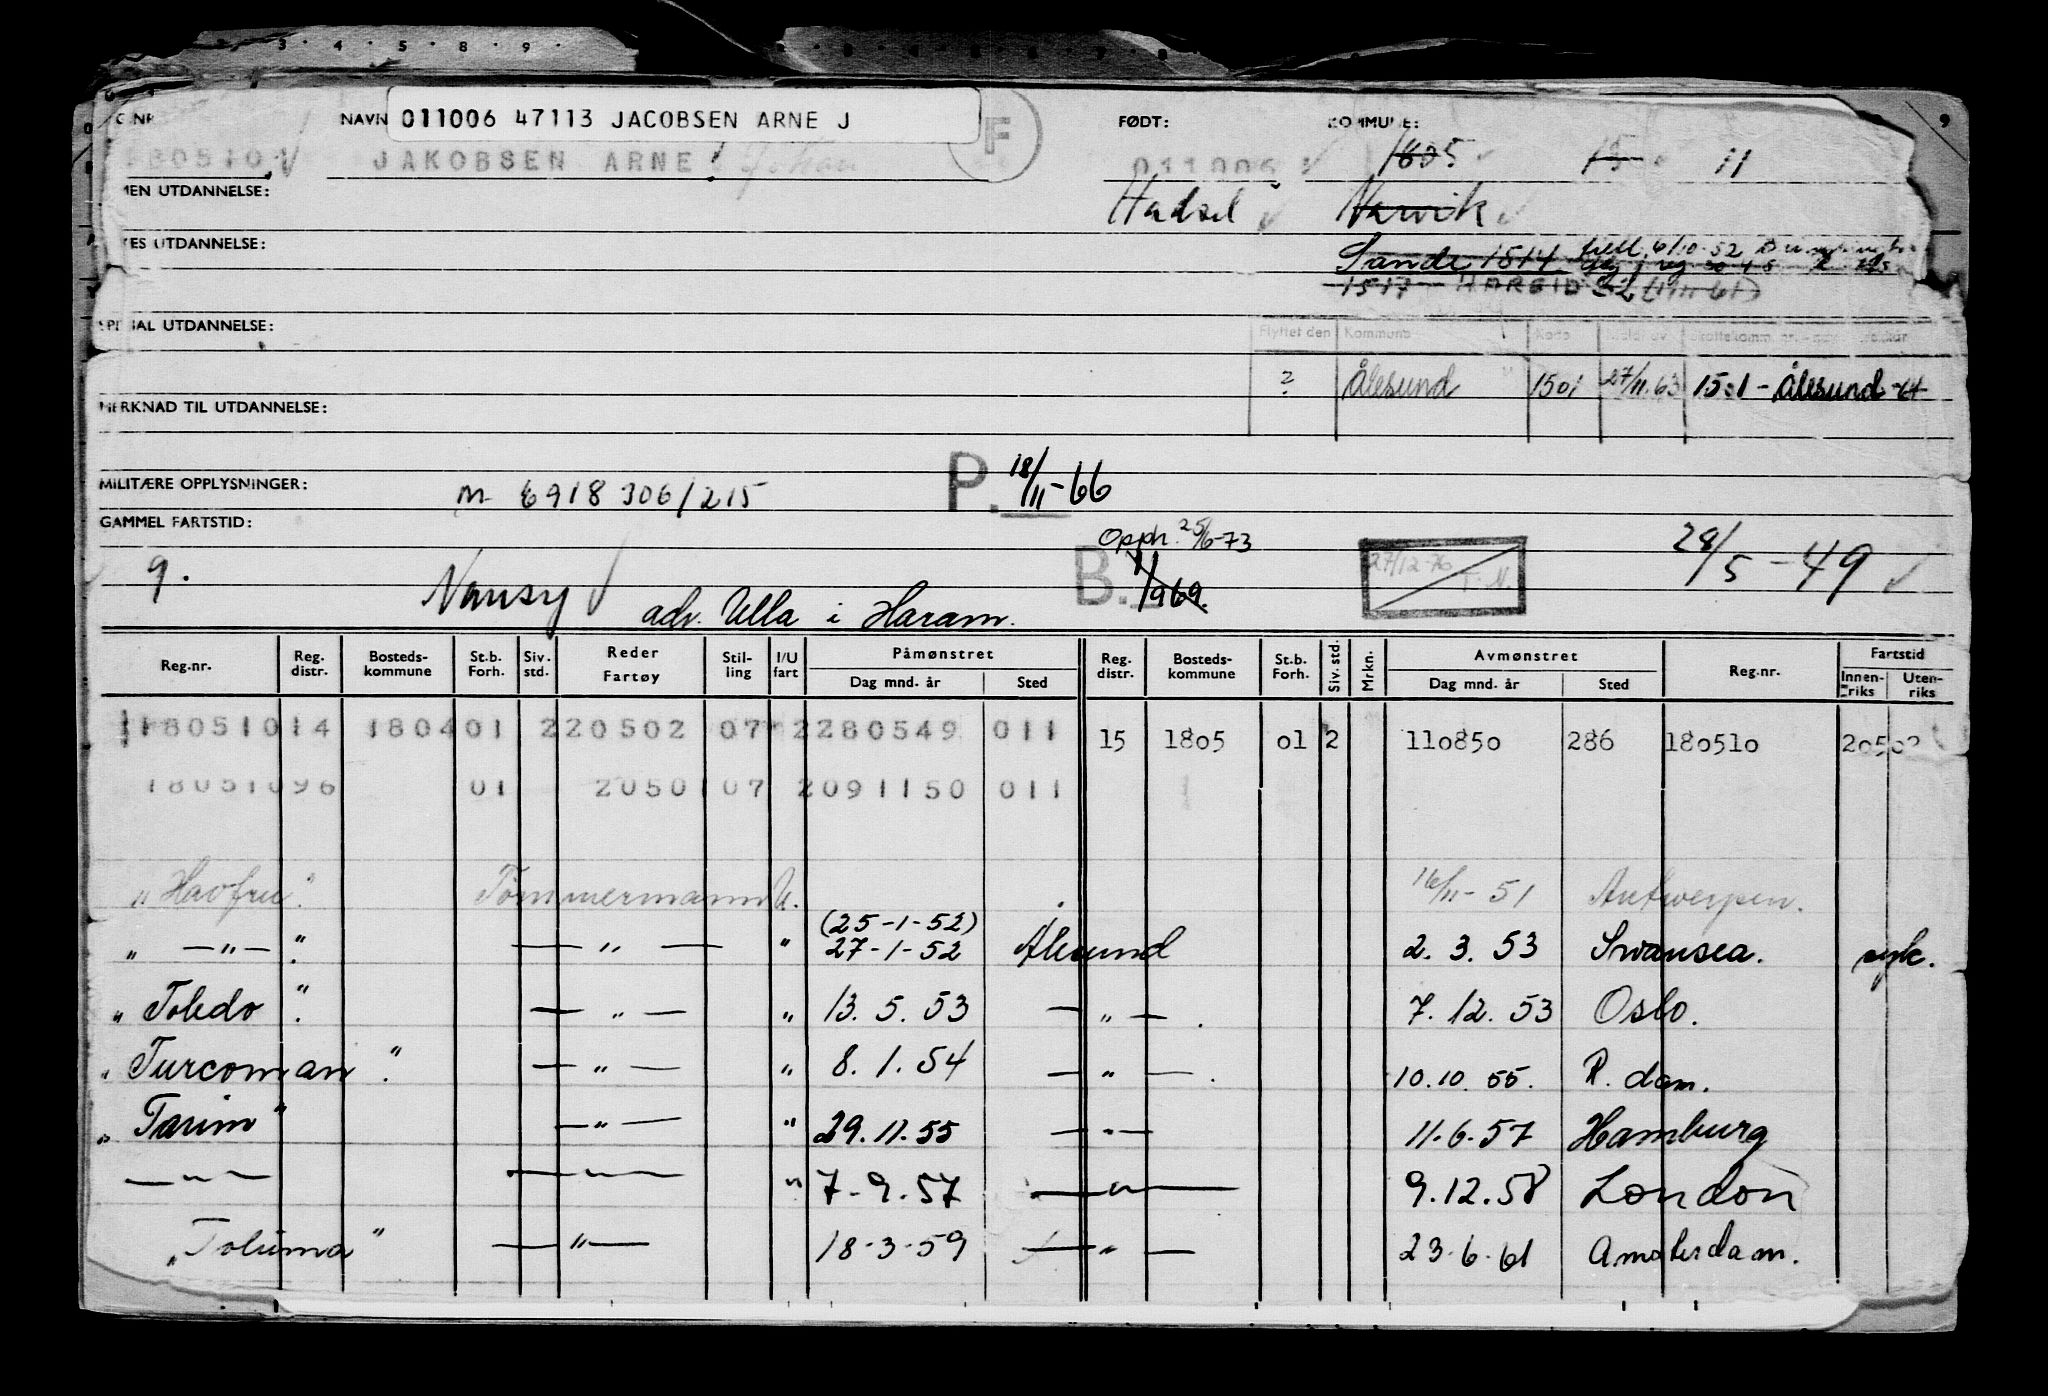 NAVN 011006 47113 JACOBSEN ARNE J F FØDT: KOMMUNE:
180510 JAKOBSEN ARNE Johan 011006 1805 15 11
MEN UTDANNELSE: Hadsel Narvik
UTDANNELSE: Sande 1814 6/10-52
1517 HAREID
SPESIAL UTDANNELSE: Flyttet den Kommune Kode
? Ålesund 1501 27/11.63 1501 - Ålesund -64
MERKNAD TIL UTDANNELSE:
P. 18/11-66
MILITÆRE OPPLYSNINGER: m 6918 306/215
GAMMEL FARTSTID: Opph. 25/6-73
9. Nansy B. 1/1 1969. 27/12-76 T.N. 28/5-49
adr. Ulla i Haram.
Reg.nr. Reg. distr. Bosteds- kommune St.b. Forh. Siv. std. Reder Fartøy Stil- ling I/U fart Påmønstret Dag mnd. år Sted Reg. distr. Bosteds- kommune St.b. Forh. Siv. std. Mrkn. Avmønstret Dag mnd. år Sted Reg.nr. Fartstid Innen- riks Uten- riks
18051014 180401 220502 07 2280549 011 15 1805 01 2 110850 286 180510 20502
18051096 01 2050107 2091150 011
"Havfru" Tømmermann U. 16/11-51 Antwerpen.
" —"— " — " — " (25-1-52)
27-1-52 Ålesund 2. 3. 53 Swansea. syk.
"Toledo" — " — " 13. 5. 53 — " — . 7. 12. 53 Oslo.
"Turcoman" — " — " 8. 1. 54 — " — . 10. 10. 55. R. dam.
"Tarim" — " — " 29. 11. 55 — " — 11. 6. 57 Hamburg
— " — — " — " 7-9.57 — " — 9.12.58 London
"Toluma" — " — 18-3-59 — " — 23-6-61 Amsterdam.